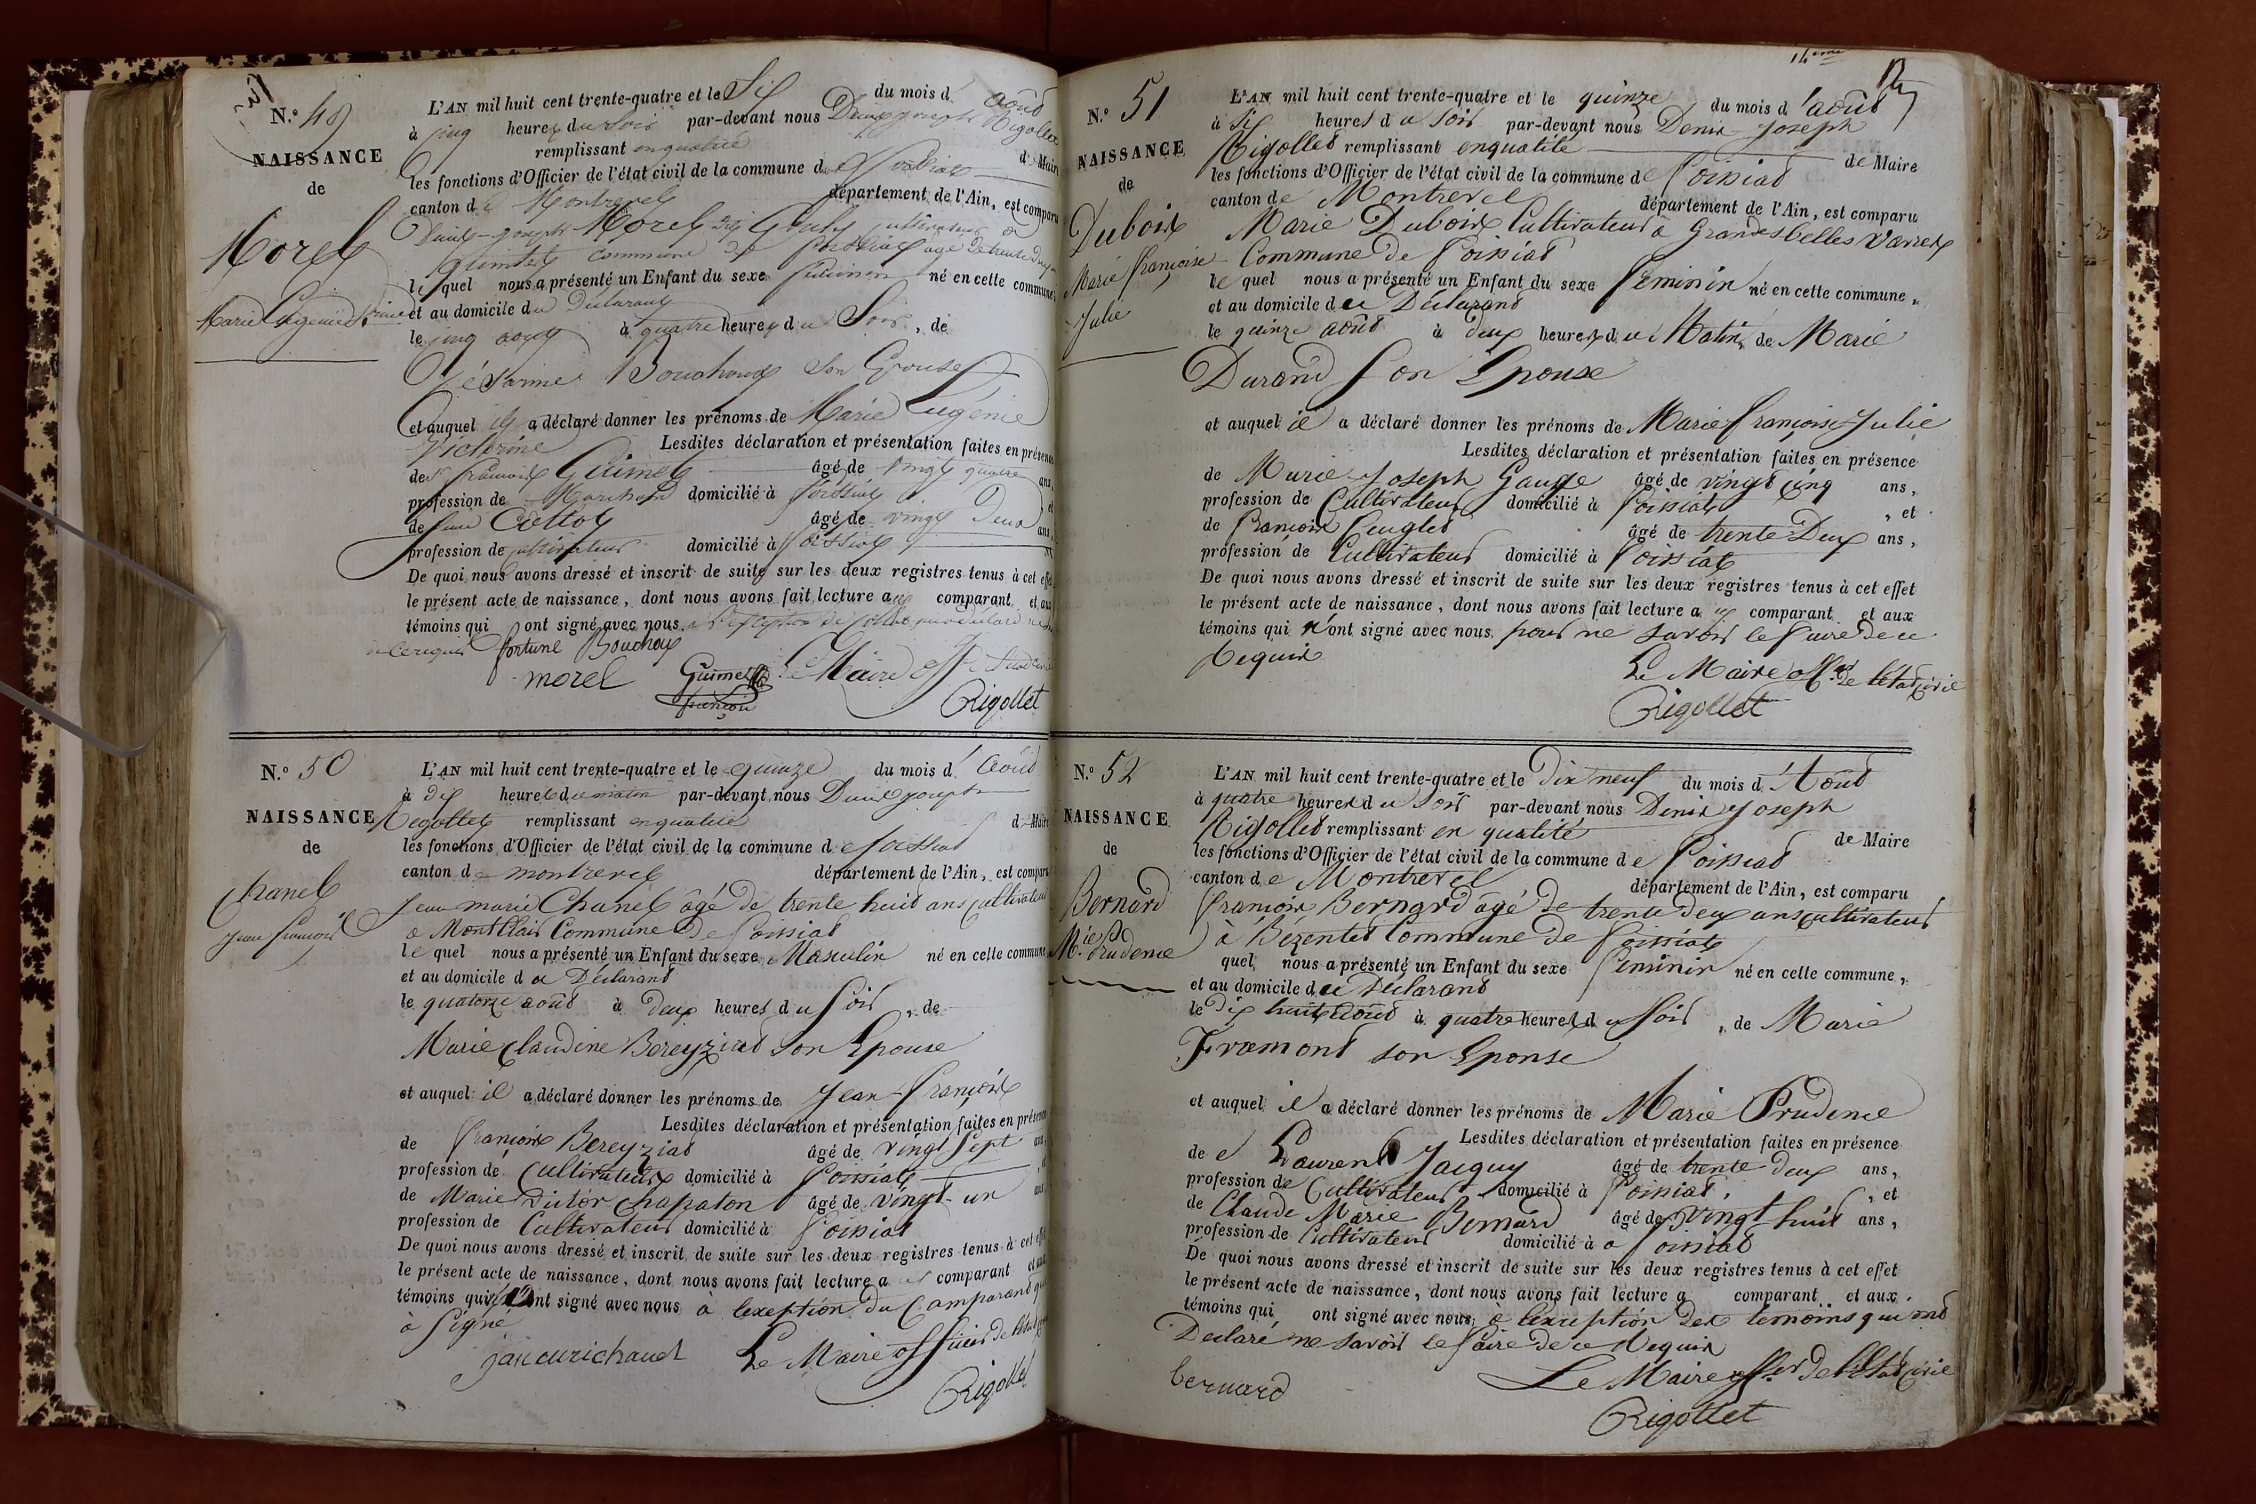 N.° 49
NAISSANCE
de
Morel
Marie Eugénie
L'AN mil huit cent trente-quatre et le Six du mois d' août
à cinq heures du Soir par-devant nous Denis joseph Rigollet
remplissant enqualité de Maire
les fonctions d'Officier de l'état civil de la commune de foissiat
canton de Montrevel département de l'Ain, est comparu
joseph Morel cultivateur
commune de foissiat âgé de trente
le quel nous a présenté un Enfant du sexe féminin né en cette commune,
et au domicile du Déclarant
le cinq août à quatre heures du Soir, de
Césarine Bouchoux Son Epouse
et auquel il a déclaré donner les prénoms de Marie Eugénie
Victorine Lesdites déclaration et présentation faites en présence
de françois Guimet âgé de vingt quatre ans,
profession de Marchand domicilié à foissiat, et
de âgé de vingt Deux ans,
profession de cultivateur domicilié à foissiat
De quoi nous avons dressé et inscrit de suite sur les deux registres tenus à cet effet
le présent acte de naissance, dont nous avons fait lecture aux comparant et aux
témoins qui ont signé avec nous à l'exception de
de ce requis fortune Bouchoux
morel Guimet françois Le Maire
Rigollet
N.° 50
NAISSANCE
de
Chanel
jean françois
L'AN mil huit cent trente-quatre et le quinze du mois d' Août
à dix heures du matin par-devant nous Denis joseph
Rigollet remplissant enqualité de Maire
les fonctions d'Officier de l'état civil de la commune de foissiat
canton de montrevel département de l'Ain, est comparu
jean marie Chanel âgé de trente huit ans Cultivateur
à Montclair Commune de foissiat
le quel nous a présenté un Enfant du sexe Masculin né en cette commune
et au domicile du Déclarant
le quatorze août à deux heures du Soir, de
Marie Claudine Bereyziat Son Epouse
et auquel il a déclaré donner les prénoms de Jean François
Lesdites déclaration et présentation faites en présence
de françois Bereyziat âgé de vingt Sept ans,
profession de Cultivateur domicilié à foissiat
de Marie Victor Chapaton âgé de vingt-un ans
profession de Cultivateur domicilié à foissiat
De quoi nous avons dressé et inscrit de suite sur les deux registres tenus à cet effet
le présent acte de naissance, dont nous avons fait lecture a comparant et aux
témoins qui n'ont signé avec nous à l'exception du Comparant qui
à Signé
janmarichanel Le Maire officier de l'état
Rigollet
14eme
N.° 51
NAISSANCE
de
Dubois
Marie françoise
Julie
L'AN mil huit cent trente-quatre et le quinze du mois d'août
à six heures du Soir par-devant nous Denis Joseph
Rigollet remplissant enqualité de Maire
les fonctions d'Officier de l'état civil de la commune de foissiat
canton de Montrevel département de l'Ain, est comparu
Marie Dubois Cultivateur à Grandes belles Varres
Commune de foissiat
le quel nous a présenté un Enfant du sexe féminin né en cette commune,
et au domicile du Déclarant
le quinze août à deux heures du Matin, de Marie
Durand Son Epouse
et auquel il a déclaré donner les prénoms de Marie françoise Julie
Lesdites déclaration et présentation faites en présence
de Marie Joseph âgé de vingt cinq ans,
profession de Cultivateur domicilié à foissiat, et
de françois âgé de trente Deux ans,
profession de Cultivateur domicilié à foissiat
De quoi nous avons dressé et inscrit de suite sur les deux registres tenus à cet effet
le présent acte de naissance, dont nous avons fait lecture aux comparant et aux
témoins qui n'ont signé avec nous pour ne savoir le faire de ce
requis
Le Maire off.er de l'état Civil
Rigollet
N.° 52
NAISSANCE
de
Bernard
M.ie Prudence
L'AN mil huit cent trente-quatre et le dix neuf du mois d'Août
à quatre heures du Soir par-devant nous Denis Joseph
Rigollet remplissant en qualité de Maire
les fonctions d'Officier de l'état civil de la commune de foissiat
canton de Montrevel département de l'Ain, est comparu
françois Bernard âgé de trente deux ans cultivateur
à Bezentet Commune de foissiat
quel nous a présenté un Enfant du sexe féminin né en cette commune,
et au domicile du Déclarant
le dix huit août à quatre heures du Soir, de Marie
Fromont son Epouse
et auquel il a déclaré donner les prénoms de Marie Prudence
Lesdites déclaration et présentation faites en présence
de Laurent Jacquy âgé de trente deux ans,
profession de Cultivateur domicilié à foissiat, et
de Claude Marie Bernard âgé de Vingt huit ans,
profession de Cultivateur domicilié à a foissiat
De quoi nous avons dressé et inscrit de suite sur les deux registres tenus à cet effet
le présent acte de naissance, dont nous avons fait lecture a comparant et aux
témoins qui ont signé avec nous, à l'exception des témoins qui ont
Déclaré ne savoir le faire de ce Requis
bernard Le Maire off.er de l'état Civil
Rigollet